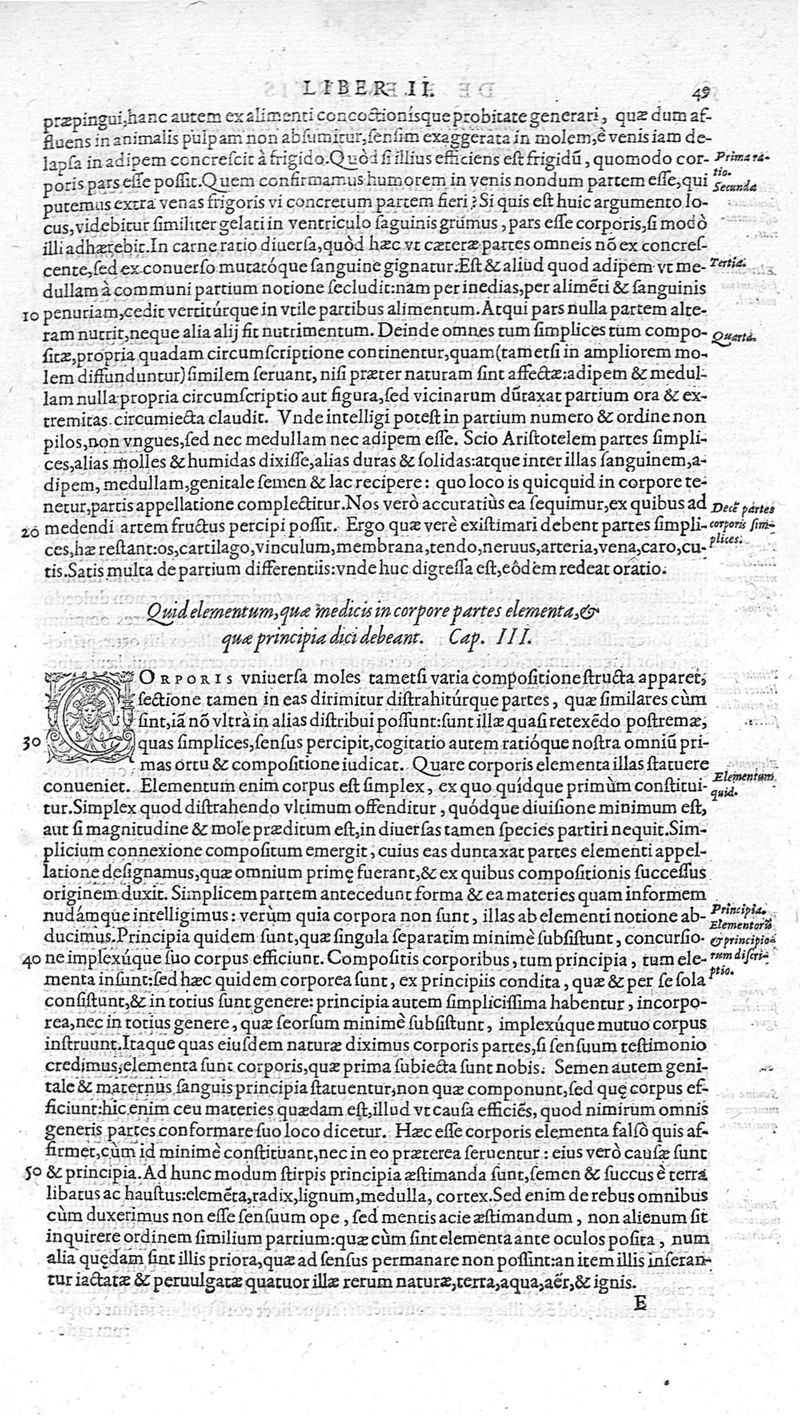 LIBER II. 49
præpingui, hanc autem ex alimenti concoctionísque probitate generari, quæ dum af-
fluens in animalis pulpam non absumitur, sensim exaggerata in molem, è venis iam de-
lapsa in adipem concrescit à frigido. Quòd si illius efficiens est frigidū, quomodo cor-
Prima rá-
tio.
poris pars esse possit. Quem confirmamus humorem in venis nondum partem esse, qui
Secunda
putemus extra venas frigoris vi concretum partem fieri? Si quis est huic argumento lo-
cus, videbitur similiter gelati in ventriculo saguinis grumus, pars esse corporis, si modò
illi adhærebit. In carne ratio diuersa, quòd hæc vt cæteræ partes omneis nõ ex concres-
cente, sed ex conuerso mutatóque sanguine gignatur. Est & aliud quod adipem vt me-
Tertia.
dullam à communi partium notione secludit: nam per inedias, per alimẽti & sanguinis
10 penuriam, cedit vertitúrque in vtile partibus alimentum. Atqui pars nulla partem alte-
ram nutrit, neque alia alij fit nutrimentum. Deinde omnes tum simplices tum compo-
Quarta.
sitæ, propria quadam circumscriptione continentur, quam (tametsi in ampliorem mo-
lem diffunduntur) similem seruant, nisi præter naturam sint affectæ: adipem & medul-
lam nulla propria circumscriptio aut figura, sed vicinarum dũtaxat partium ora & ex-
tremitas circumiecta claudit. Vnde intelligi potest in partium numero & ordine non
pilos, non vngues, sed nec medullam nec adipem esse. Scio Aristotelem partes simpli-
ces, alias molles & humidas dixisse, alias duras & solidas: atque inter illas sanguinem, a-
dipem, medullam, genitale semen & lac recipere: quo loco is quicquid in corpore te-
netur, partis appellatione complectitur. Nos verò accuratiùs ea sequimur, ex quibus ad
Decẽ partes
20 medendi artem fructus percipi possit. Ergo quæ verè existimari debent partes simpli-
corporis sim-
ces, hæ restant: os, cartilago, vinculum, membrana, tendo, neruus, arteria, vena, caro, cu-
plices.
tis. Satis multa de partium differentiis: vnde huc digressa est, eôdem redeat oratio.
Quid elementum, quæ medicis in corpore partes elementa, &
quæ principia dici debeant. Cap. III.
CORPORIS vniuersa moles tametsi varia compositione structa apparet,
sectione tamen in eas dirimitur distrahitúrque partes, quæ similares cùm
sint, iã nõ vltrà in alias distribui possunt: sunt illæ quasi retexẽdo postremæ,
30 quas simplices, sensus percipit, cogitatio autem ratióque nostra omniũ pri-
mas ortu & compositione iudicat. Quare corporis elementa illas statuere
conueniet. Elementum enim corpus est simplex, ex quo quidque primùm constitui-
Elementum
quid.
tur. Simplex quod distrahendo vltimum offenditur, quódque diuisione minimum est,
aut si magnitudine & mole præditum est, in diuersas tamen species partiri nequit. Sim-
plicium connexione compositum emergit, cuius eas duntaxat partes elementi appel-
latione designamus, quæ omnium primę fuerant, & ex quibus compositionis successus
originem duxit. Simplicem partem antecedunt forma & ea materies quam informem
nudámque intelligimus: verùm quia corpora non sunt, illas ab elementi notione ab-
Principia.
Elementorũ
ducimus. Principia quidem sunt, quæ singula separatim minimè subsistunt, concursio-
& principio-
40 ne implexúque suo corpus efficiunt. Compositis corporibus, tum principia, tum ele-
rum discri-
ptio.
menta insunt: sed hæc quidem corporea sunt, ex principiis condita, quæ & per se sola
consistunt, & in totius sunt genere: principia autem simplicissima habentur, incorpo-
rea, nec in totius genere, quæ seorsum minimè subsistunt, implexúque mutuo corpus
instruunt. Itaque quas eiusdem naturæ diximus corporis partes, si sensuum testimonio
credimus, elementa sunt corporis, quæ prima subiecta sunt nobis. Semen autem geni-
tale & maternus sanguis principia statuentur, non quæ componunt, sed quę corpus ef-
ficiunt: hic enim ceu materies quædam est, illud vt causa efficiẽs, quod nimirum omnis
generis partes conformare suo loco dicetur. Hæc esse corporis elementa falsò quis af-
firmet, cùm id minimè constituant, nec in eo præterea seruentur: eius verò causæ sunt
50 & principia. Ad hunc modum stirpis principia æstimanda sunt, semen & succus è terra
libatus ac haustus: elemẽta, radix, lignum, medulla, cortex. Sed enim de rebus omnibus
cùm duxerimus non esse sensuum ope, sed mentis acie æstimandum, non alienum sit
inquirere ordinem similium partium: quæ cùm sint elementa ante oculos posita, num
alia quędam sint illis priora, quæ ad sensus permanare non possint: an item illis inseran-
tur iactatæ & peruulgatæ quatuor illæ rerum naturæ, terra, aqua, aër, & ignis.
E